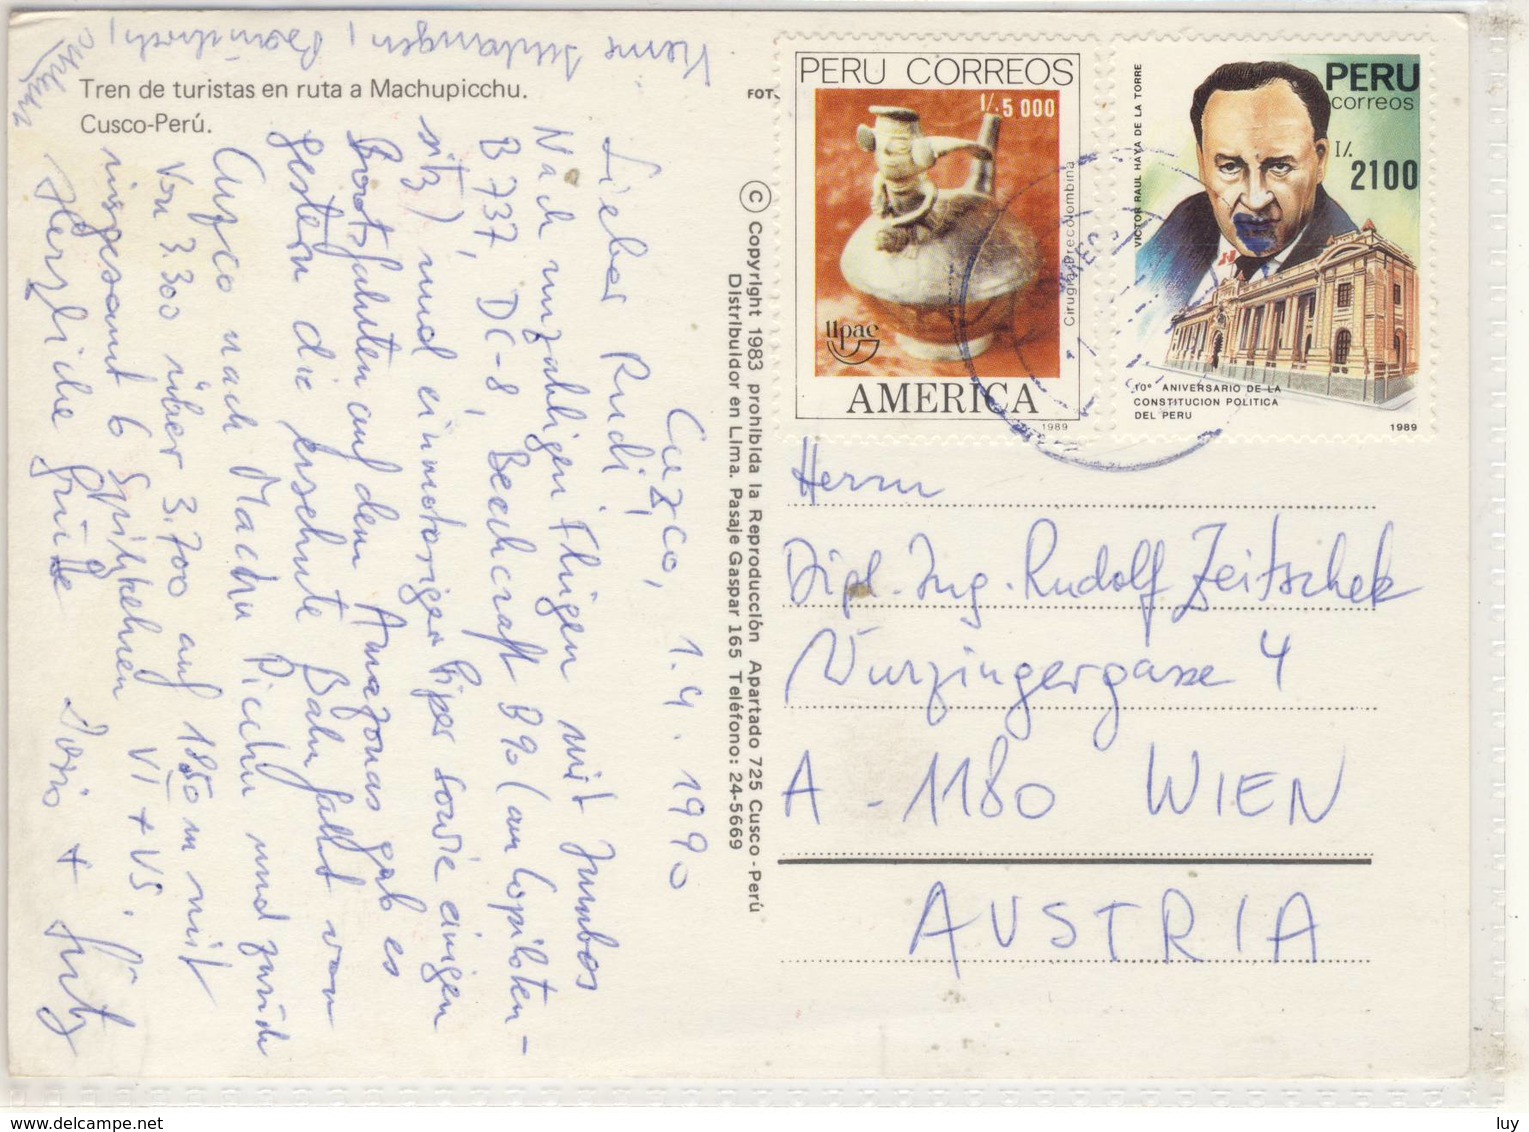 Tren de turistas en ruta a Machupicchu.
Cusco-Perú.
FOT
Cuzco, 1.4.1990
Lieber Rudi,
Nach unzähligen Flügen mit Jumbos
B 737, DC-8, Beechcraft B90 (am Copiloten-
sitz) und einmotoriger Piper sowie einigen
Bootsfahrten auf dem Amazonas gab es
gestern die ersehnte Bahnfahrt von
Cuzco nach Machu Picchu und zurück
Von 3.300 über 3.700 auf 1850 m mit
insgesamt 6 Spitzkehren VI + VS.
Herzliche Grüße
© Copyright 1983 prohibida la Reproducción Apartado 725 Cusco-Perú
Distribuidor en Lima. Pasaje Gaspar 165 Teléfono: 24-5669
PERU CORREOS
I/. 5 000
Cirugía Precolombina
upae
AMERICA
1989
PERU
correos
I/.
2100
VICTOR RAUL HAYA DE LA TORRE
10° ANIVERSARIO DE LA
CONSTITUCION POLITICA
DEL PERU
1989
Herrn
Dipl.-Ing. Rudolf Zeitschek
Wurzingergasse 4
A - 1180 WIEN
AUSTRIA
luy
www.delcampe.net